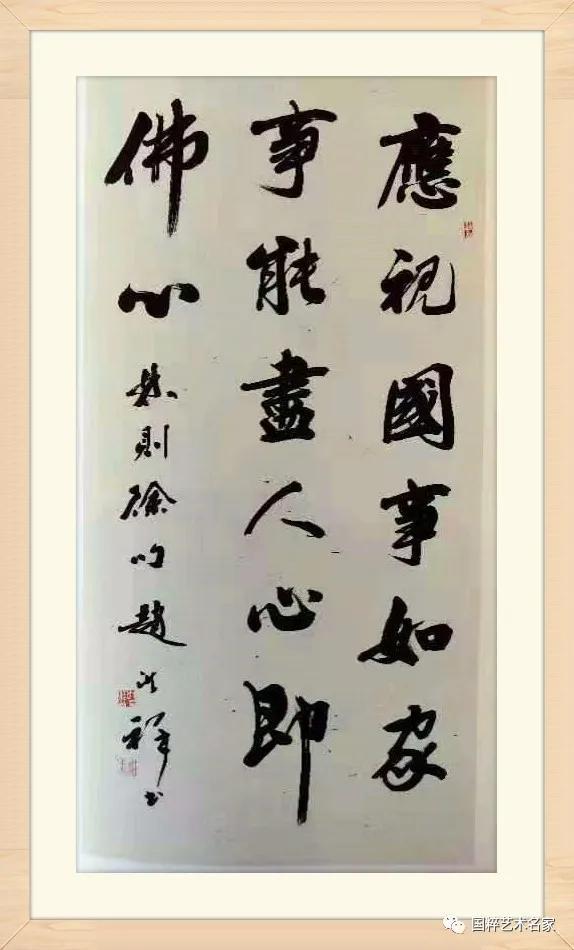 應視國事如家
事能盡人心即
佛心 林則徐句 趙 祥书
国粹艺术名家